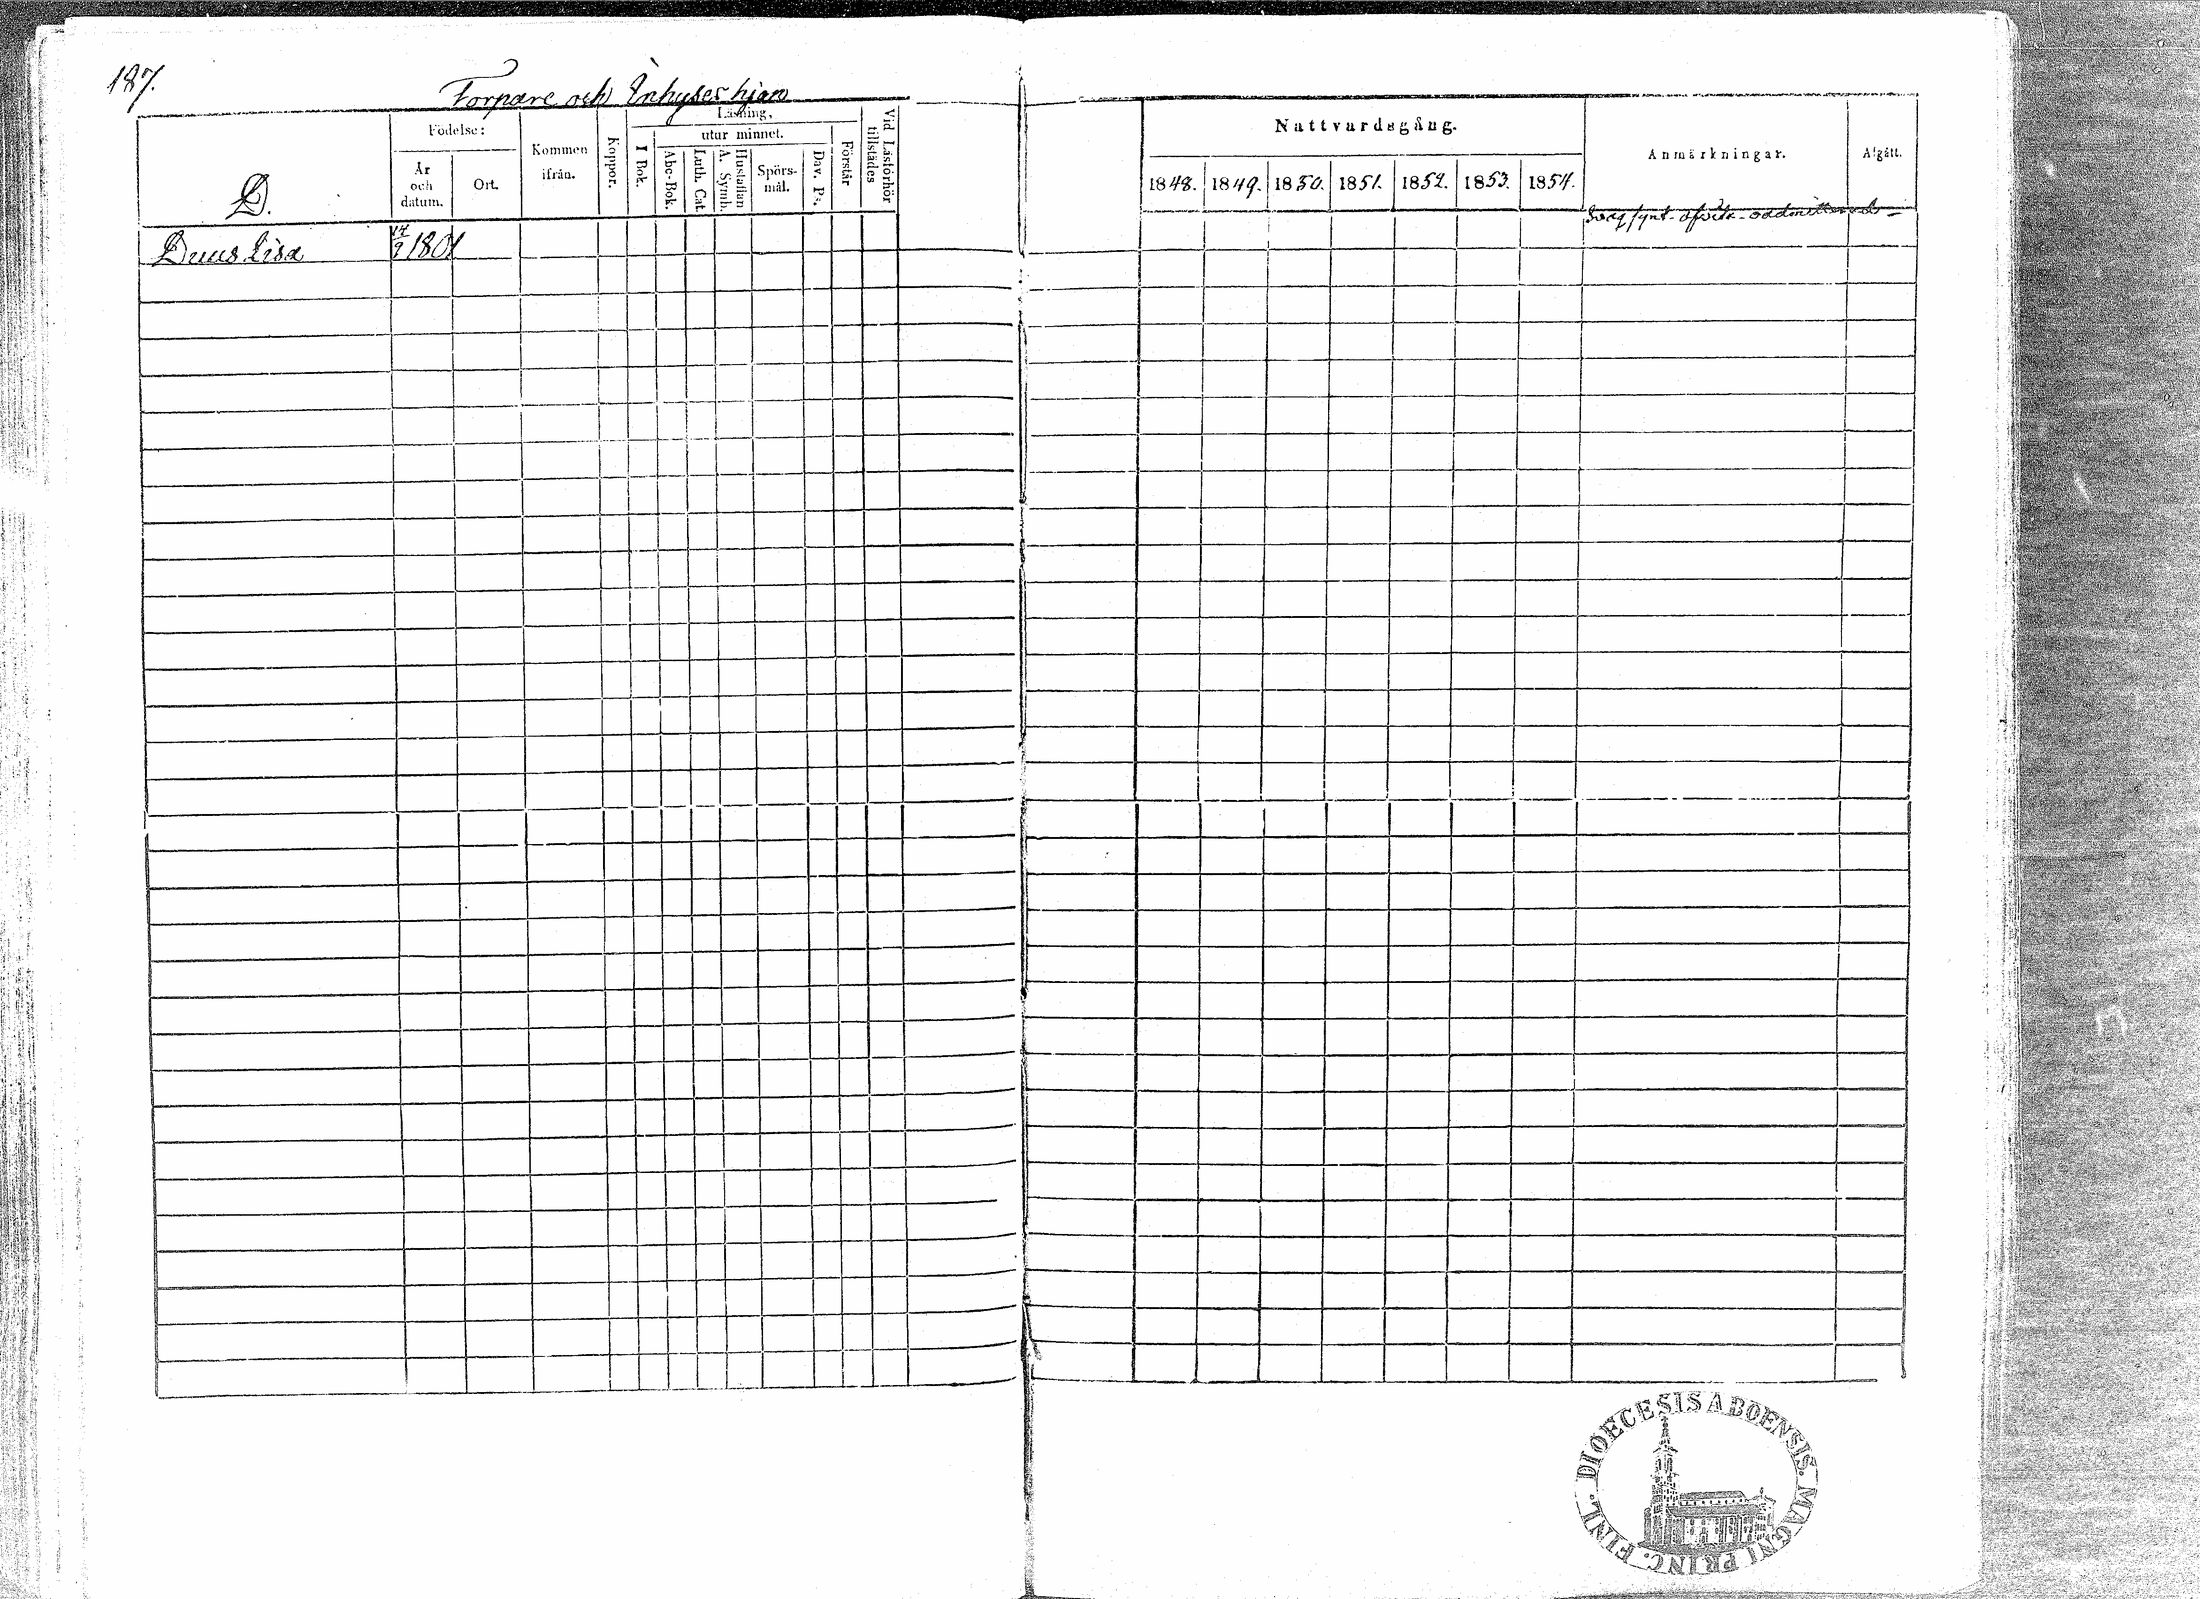 187.
Torpare och Inhyses hjon
D.
Födelse:
År och datum.
Ort.
Kommen ifrån.
Koppor.
Läsning,
I Bok.
utur minnet.
Abc-Bok.
Luth. Cat.
Hustaflan A. Symb.
Spörsmål.
Dav. Ps.
Förstår
Vid Läsförhör tillstädes
Nattvardsgång.
1848. 1849. 1850. 1851. 1852. 1853. 1854.
Anmärkningar.
Afgått.
Svagsynt
Duus Lisa 14/9 1801
DIOECESIS ABOENSIS. MAGNI PRINC. FINL.